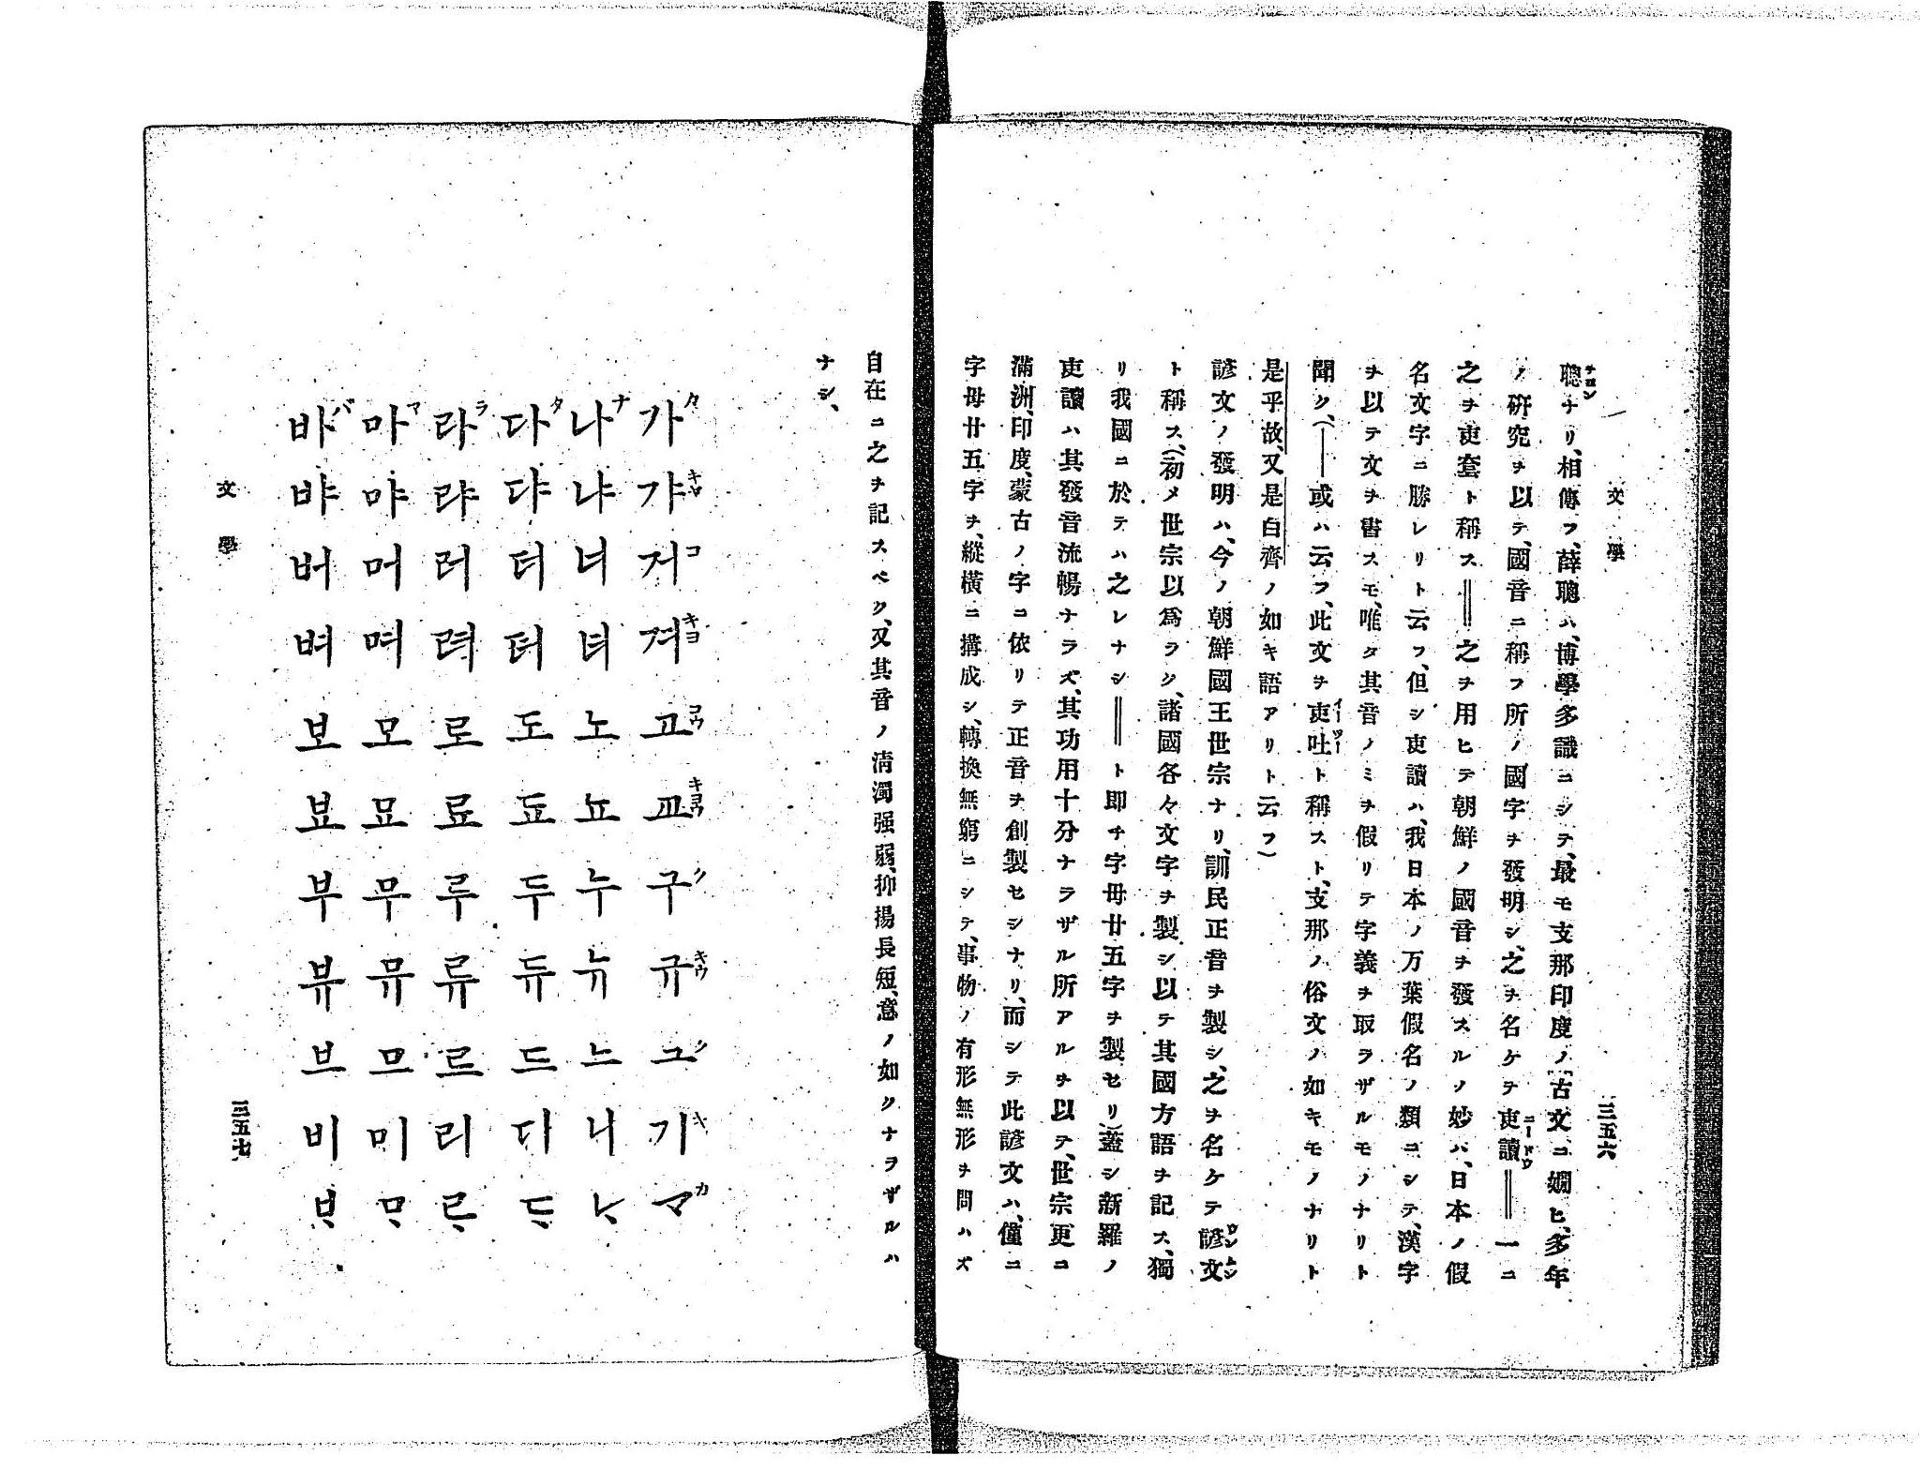 文學
三五六
聰ナリ、相傳フ、薛聰ハ、博學多識ニシテ、最モ支那印度ノ古文ニ嫺ヒ、多年
チヨン
ノ硏究ヲ以テ、國音ニ稱フ所ノ國字ヲ發明シ、之ヲ名ケテ吏讀＝一ニ
ニードウ
之ヲ吏套ト稱ス＝之ヲ用ヒテ朝鮮ノ國音ヲ發スルノ妙ハ、日本ノ假
名文字ニ勝レリト云フ、但シ吏讀ハ、我日本ノ万葉假名ノ類ニシテ、漢字
ヲ以テ文ヲ書スモ、唯タ其音ノミヲ假リテ字義ヲ取ラザルモノナリト
聞ク、(—或ハ云フ、此文ヲ吏吐ト稱スト、支那ノ俗文ノ如キモノナリト
イーツー
是乎故、又是白齊ノ如キ語アリト云フ)
諺文ノ發明ハ、今ノ朝鮮國王世宗ナリ、訓民正音ヲ製シ、之ヲ名ケテ諺文
ヲンムン
ト稱ス、(初メ世宗以爲ラク、諸國各々文字ヲ製シ以テ其國方語ヲ記ス、獨
リ我國ニ於テハ之レナシ＝ト即チ字母廿五字ヲ製セリ)蓋シ新羅ノ
吏讀ハ其發音流暢ナラズ、其功用十分ナラザル所アルヲ以テ、世宗更ニ
滿洲、印度、蒙古ノ字ニ依リテ正音ヲ創製セシナリ、而シテ此諺文ハ、僅ニ
字母廿五字ヲ、縱橫ニ搆成シ、轉換無窮ニシテ、事物ノ有形無形ヲ問ハズ
自在ニ之ヲ記スベク、又其音ノ淸濁强弱、抑揚長短、意ノ如クナラザルハ
ナシ、
가 갸 거 겨 고 교 구 규 그 기 ᄀᆞ
カ キヤ コ キヨ コウ キヨウ ク キウ ク キ カ
나 냐 너 녀 노 뇨 누 뉴 느 니 ᄂᆞ
ナ
다 댜 더 뎌 도 됴 두 듀 드 디 ᄃᆞ
タ
라 랴 러 려 로 료 루 류 르 리 ᄅᆞ
ラ
마 먀 머 며 모 묘 무 뮤 므 미 ᄆᆞ
マ
바 뱌 버 벼 보 뵤 부 뷰 브 비 ᄇᆞ
バ
文學
三五七